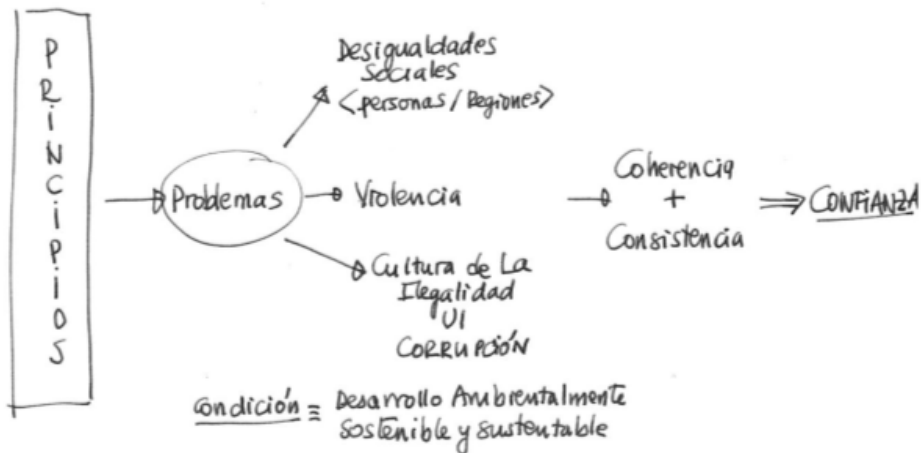 PRINCIPIOS
Problemas
Desigualdades
Sociales
<personas / Regiones>
Violencia
Cultura de La
Ilegalidad
UI
CORRUPCIÓN
Coherencia
+
Consistencia
CONFIANZA
Condición ≡ Desarrollo Ambientalmente
Sostenible y sustentable